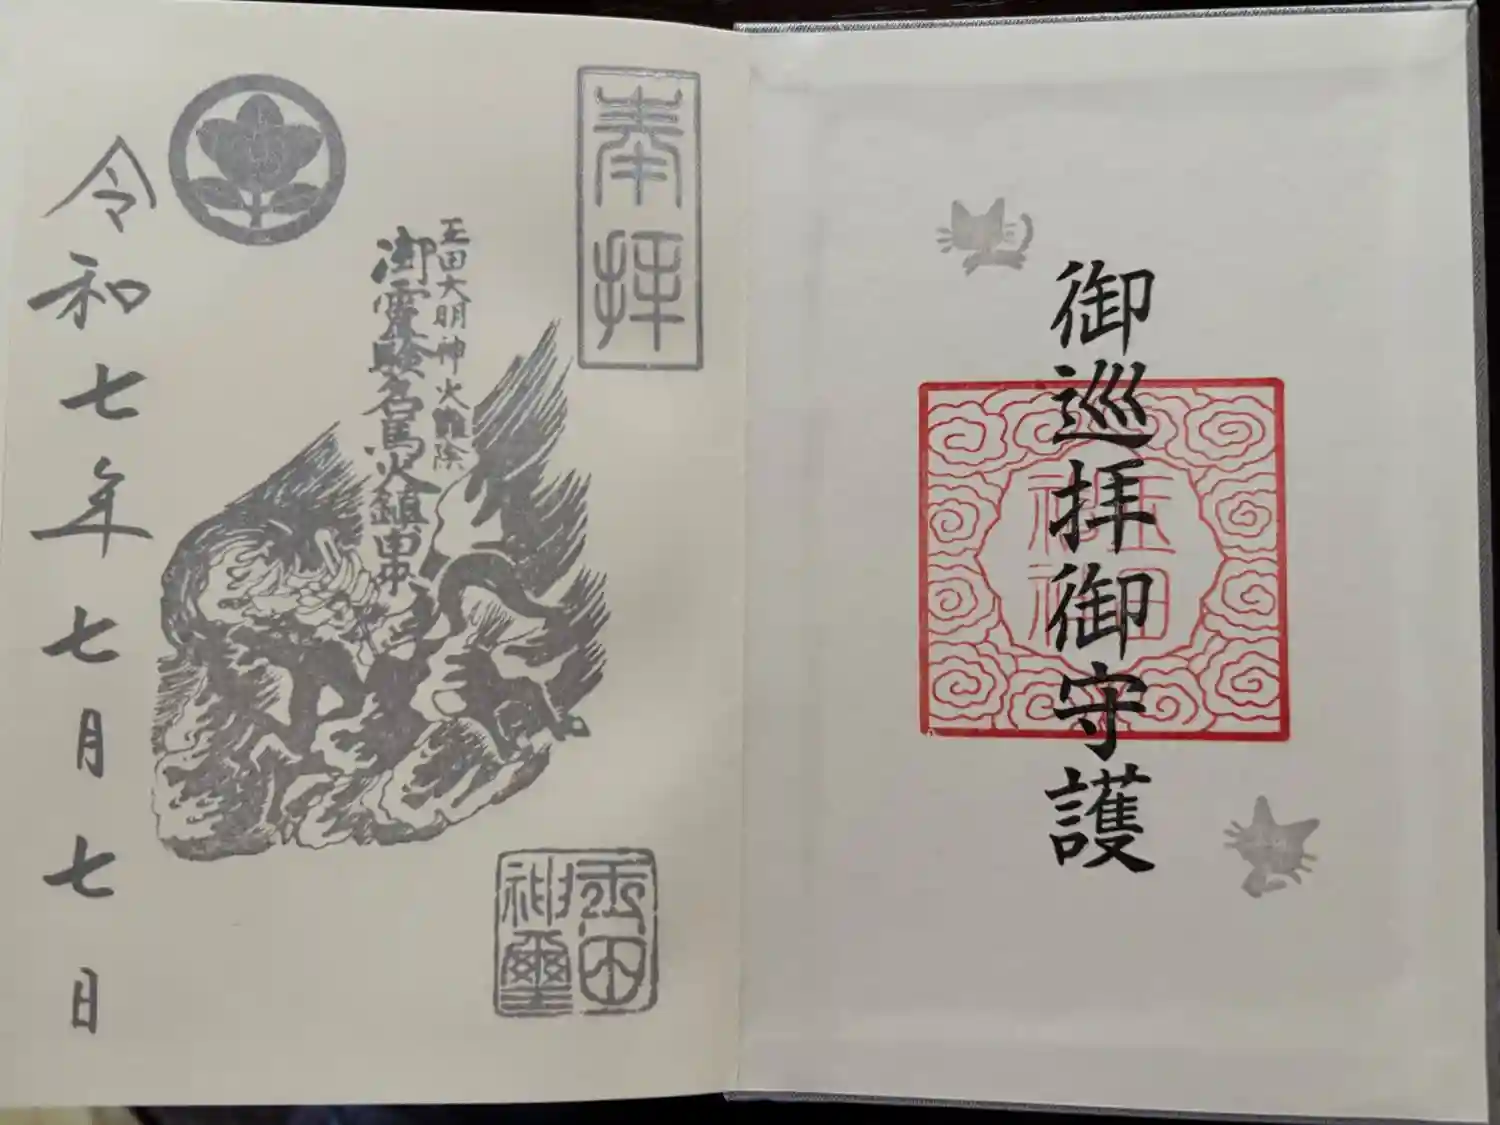 御巡拝御守護
奉拝
玉田大明神火難除
御霊験名馬火鎮
玉田
神璽
令和七年七月七日